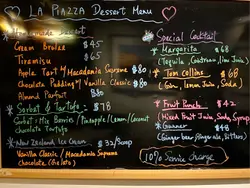 LA PIAZZA Dessert Menu
Homemade Dessert
Cream Brulee $45
Tiramisu $65
Apple Tart w/ Macadamia Supreme $80
Chocolate Pudding w/ Vanilla Classic $80
Almond Parfait $80
Sorbet & Tartufo $78
Sorbet: Mix Berries / Pineapple / Lemon / Coconut
chocolate Tartufo
New Zealand Ice Cream $32/Scoop
Vanilla Classic / Macadamia Supreme
Chocolate (Gelato)
Special Cocktail
Margarita $68
(Tequila, Cointreau, lime Juice)
Tom Colline $68
(Gin, lemon Juice, Soda)
Fruit Punch $42
(Mixed Fruit Juice, Soda, Syrup)
Gunner $48
(Ginger Beer, Ginger Ale, Bitters)
10% Service charge